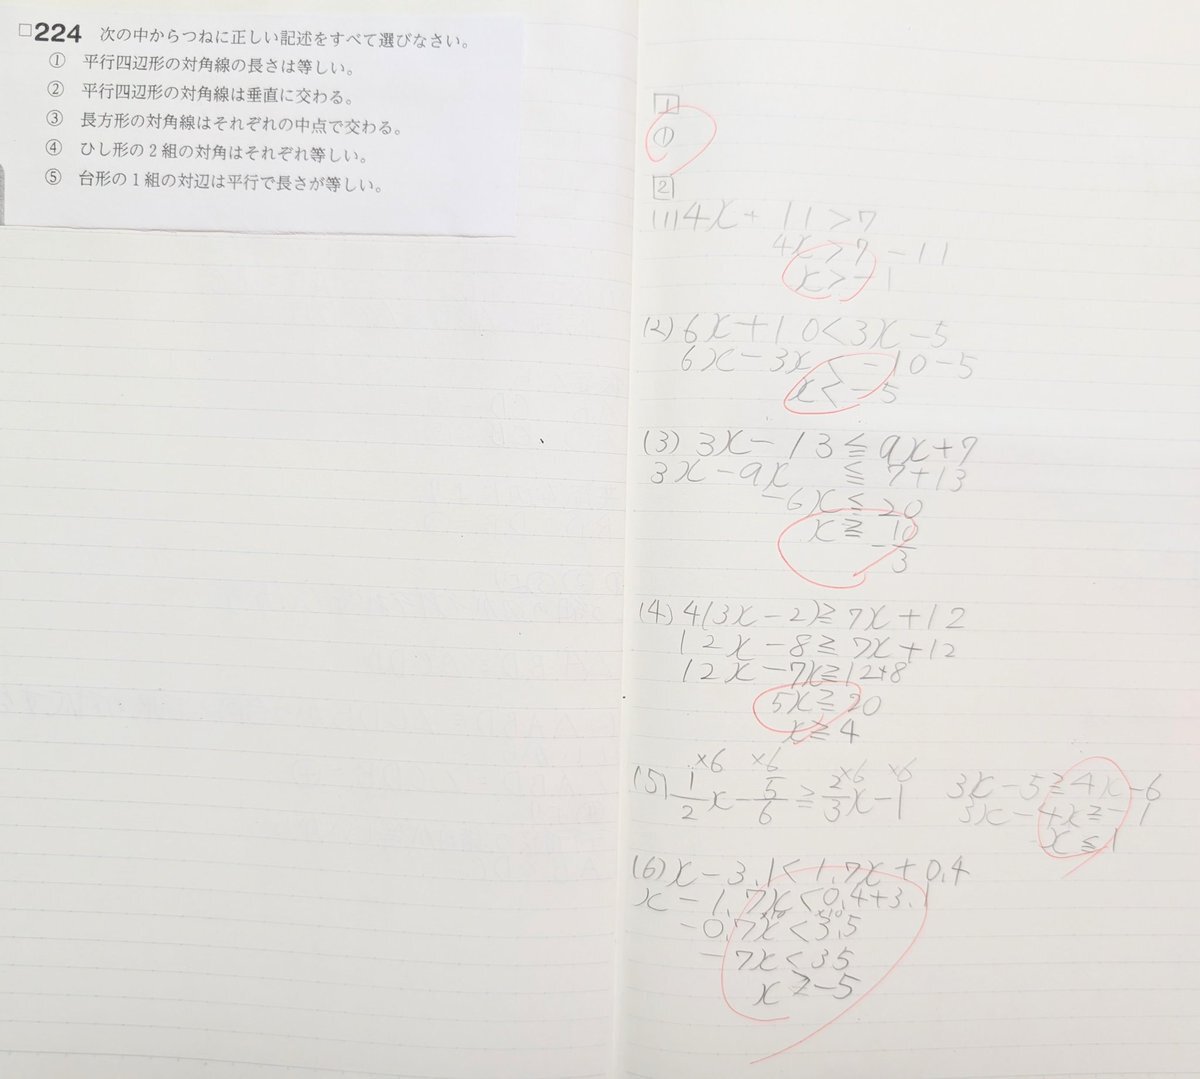 □224 次の中からつねに正しい記述をすべて選びなさい。
① 平行四辺形の対角線の長さは等しい。
② 平行四辺形の対角線は垂直に交わる。
③ 長方形の対角線はそれぞれの中点で交わる。
④ ひし形の2組の対角はそれぞれ等しい。
⑤ 台形の1組の対辺は平行で長さが等しい。
1
①
2
(1) 4x + 11 > 7
4x > 7 - 11
x > -1
(2) 6x + 10 < 3x - 5
6x - 3x < -10 - 5
x < -5
(3) 3x - 13 ≦ 9x + 7
3x - 9x ≦ 7 + 13
-6x ≦ 20
x ≧ -10/3
(4) 4(3x - 2) ≧ 7x + 12
12x - 8 ≧ 7x + 12
12x - 7x ≧ 12 + 8
5x ≧ 20
x ≧ 4
×6 ×6 ×6 ×6
(5) 1/2 x - 5/6 ≧ 2/3 x - 1
3x - 5 ≧ 4x - 6
3x - 4x ≧ -1
x ≦ 1
(6) x - 3.1 < 1.7x + 0.4
x - 1.7x < 0.4 + 3.1
×10 ×10
-0.7x < 3.5
-7x < 35
x > -5